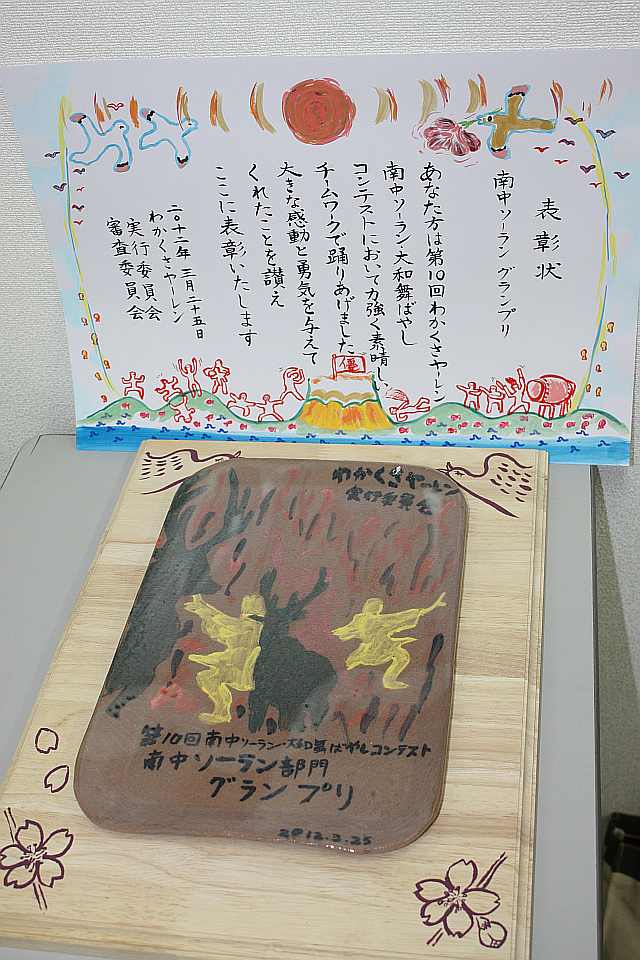 表彰状
南中ソーラン グランプリ
あなた方は第10回わかくさヤーレン
南中ソーラン・大和舞ばやし
コンテストにおいて力強く素晴しい
チームワークで踊りあげました
大きな感動と勇気を与えて
くれたことを讃え
ここに表彰いたします
二〇十二年 三月 二十五日
わかくさヤーレン
実行委員会
審査委員会
優
わかくさヤーレン
実行委員会
第10回南中ソーラン・大和舞ばやしコンテスト
南中ソーラン部門
グランプリ
2012.3.25